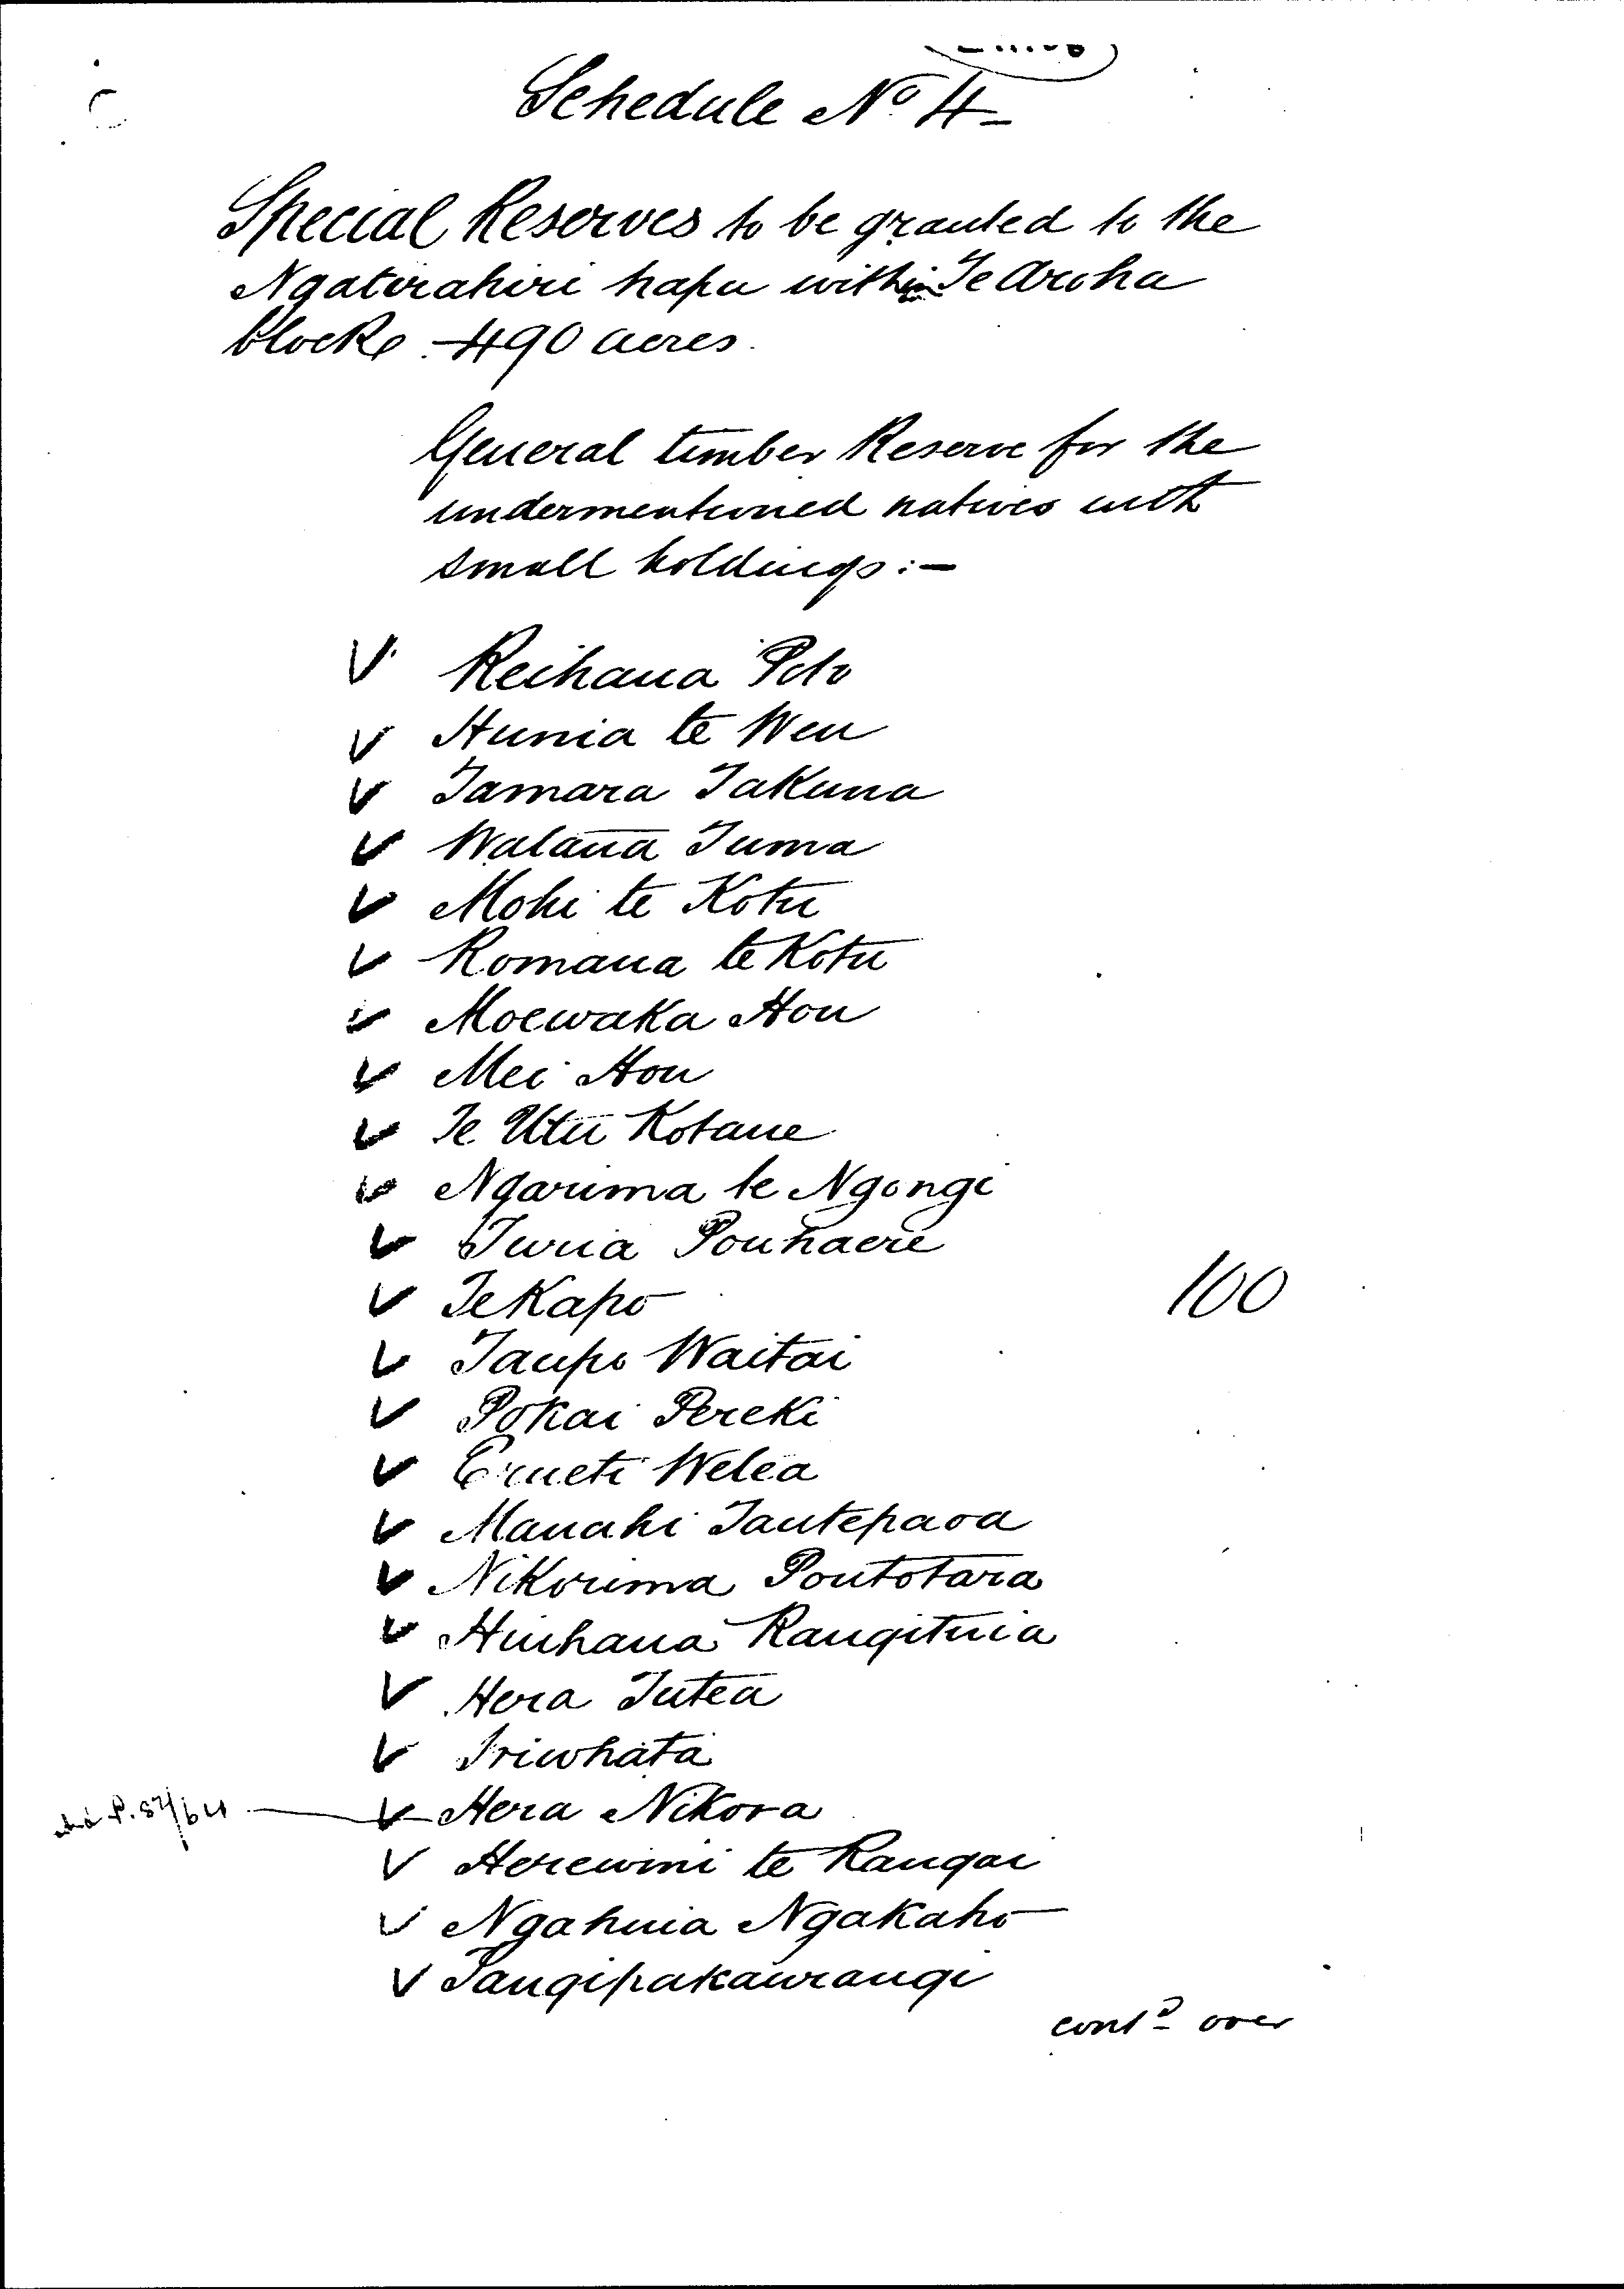 Schedule No 4
Special Reserves to be granted to the
Ngatirahiri hapu within Te Aroha
block 490 acres.
General timber Reserve for the
undermentioned natives with
small holdings:-
V Reihana Poto
V Hunia te Weu
V Tamara Takuna
V Watana Tuma
V Mohi te Kotu
V Romana te Kotu
V Moewaka Hou
V Mei Hou
V Te Utu Kotane
V Ngarima te Ngongi
V Turia Pouhaere
V Te Kapo
100
V Taupo Waitai
V Pokai Pereki
V Erueti Wetea
V Manahi Tautepaoa
V Nikorima Poutotara
V Hirihana Rangituia
V Hera Tutea
V Iriwhata
V Hera Nikora
V Herewini te Rangai
V Ngahuia Ngakaho
V Tangipakaurangi
contd over